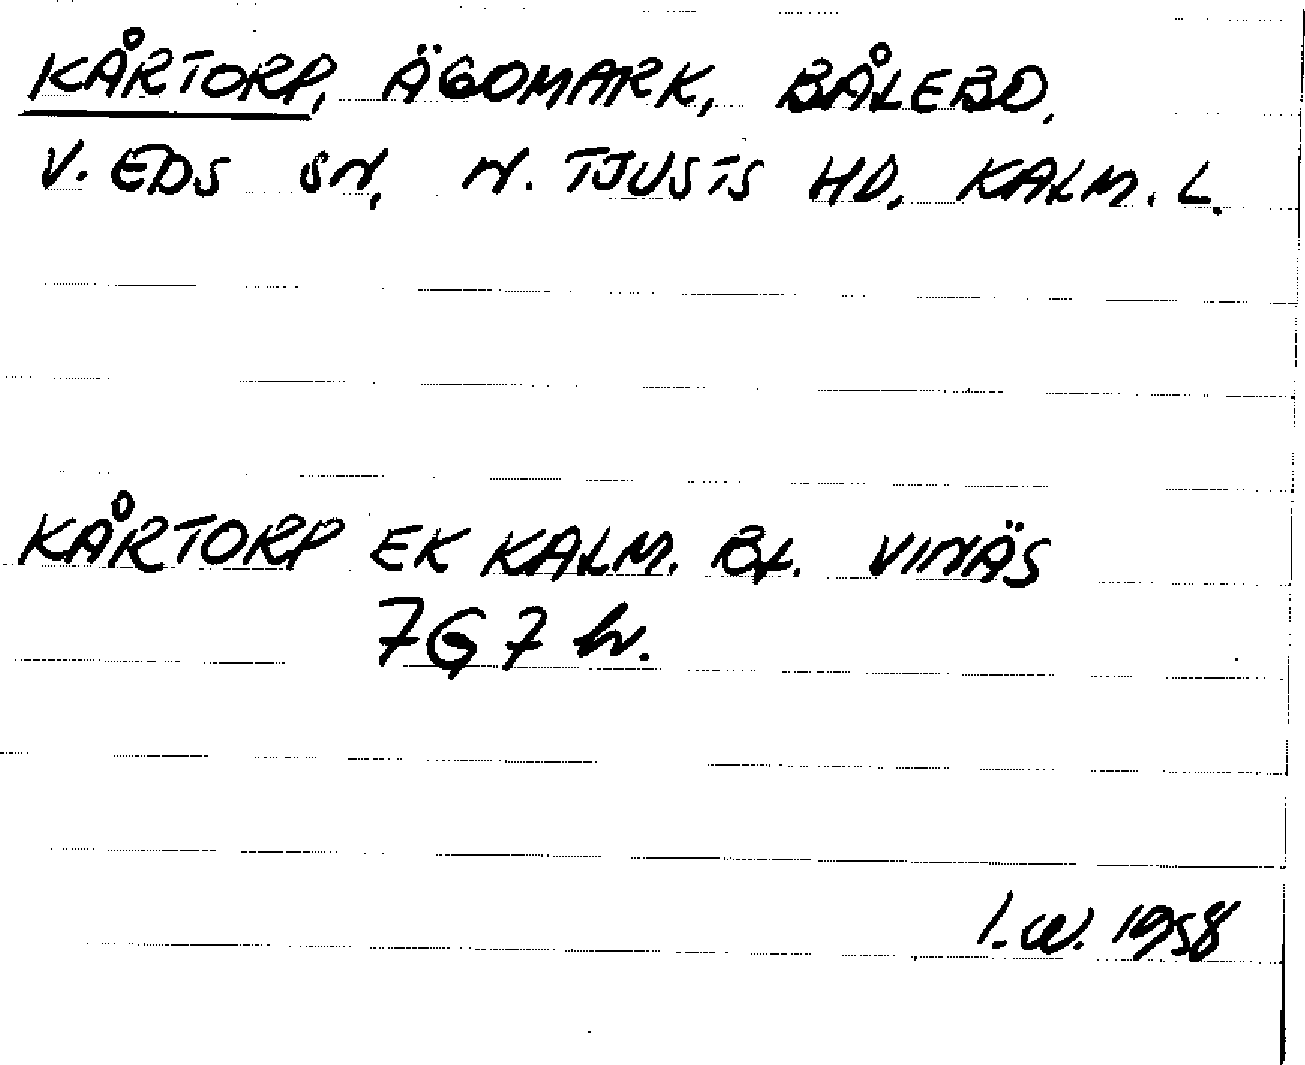 KÅRTORP, ÄGOMARK, BÅLEBO,
V. EDS SN, N. TJUSTS HD, KALM. L.
KÅRTORP EK KALM. BL. VINÄS
7G7h.
I.W. 1958